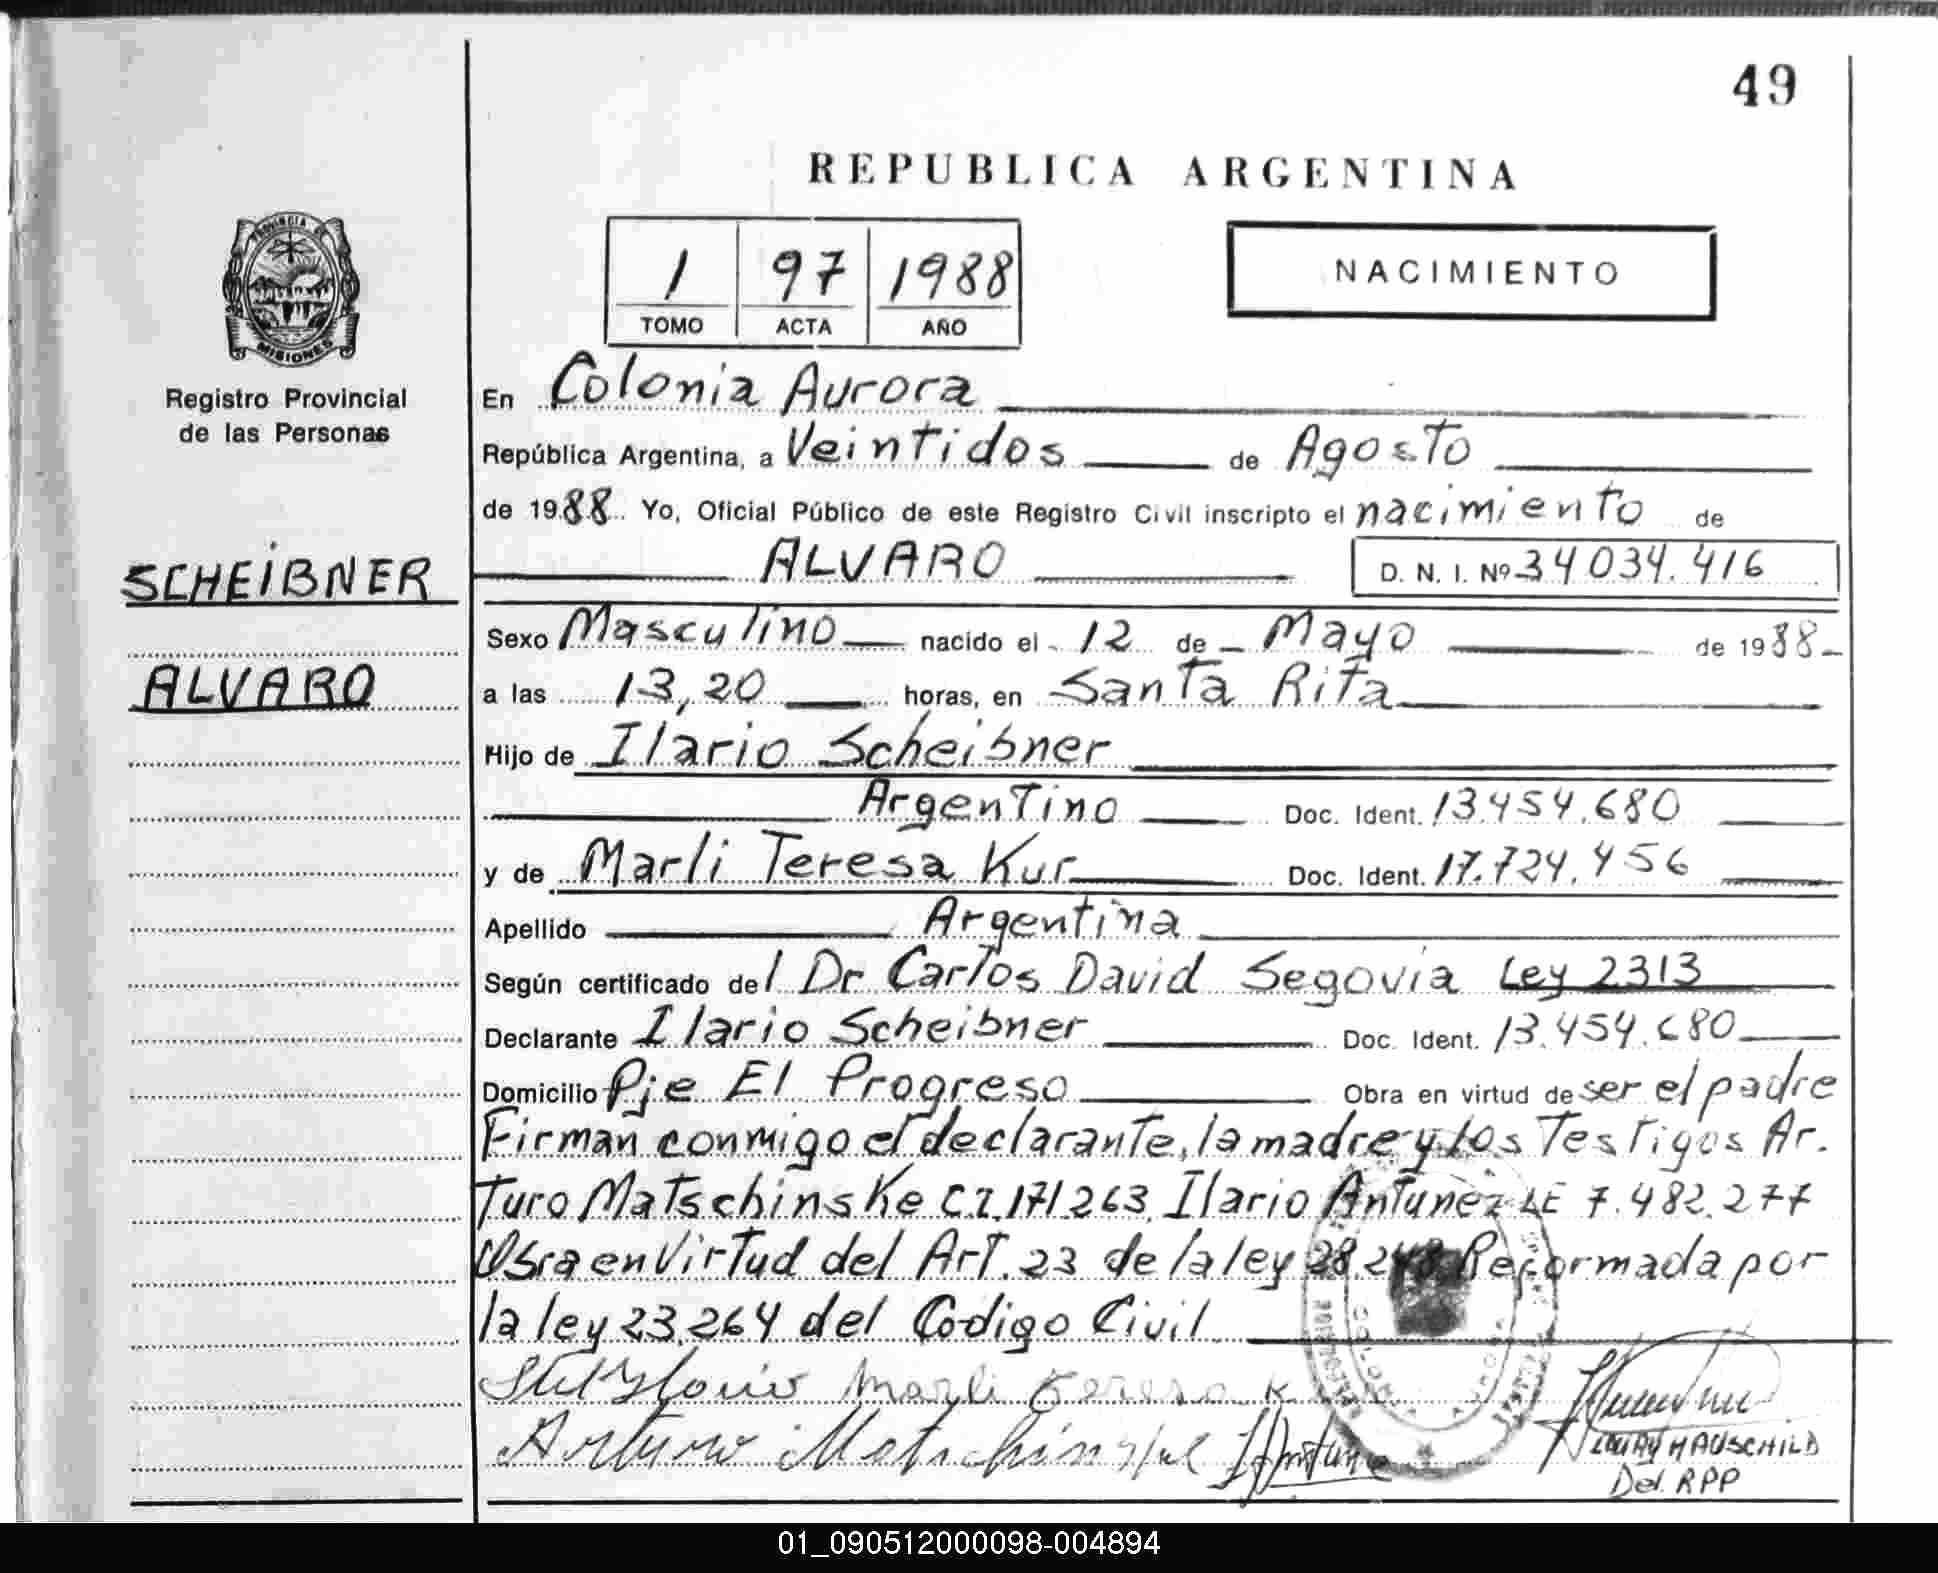 49
REPUBLICA ARGENTINA
PROVINCIA DE
MISIONES
Registro Provincial
de las Personas
SCHEIBNER
ALVARO
1 97 1988
TOMO ACTA AÑO
NACIMIENTO
En Colonia Aurora
República Argentina, a Veintidos de Agosto
de 1988 Yo, Oficial Público de este Registro Civil inscripto el nacimiento de
ALVARO D. N. I. Nº 34034.416
Sexo Masculino nacido el 12 de Mayo de 1988
a las 13,20 horas, en Santa Rita
Hijo de Ilario Scheibner
Argentino Doc. Ident. 13.454.680
y de Marli Teresa Kur Doc. Ident. 17.724.456
Apellido Argentina
Según certificado del Dr Carlos David Segovia Ley 2313
Declarante Ilario Scheibner Doc. Ident. 13.454.680
Domicilio Pje El Progreso Obra en virtud de ser el padre
Firman conmigo el declarante, la madre y los Testigos Ar.
Turo Matschinske C.I. 171.263, Ilario Antunez LE 7.482.277
Obra en Virtud del Art. 23 de la ley 28.248 Reformada por
la ley 23.264 del Codigo Civil
Marli Teresa K
Arturo
HAUSCHILD
Del. RPP
01_090512000098-004894